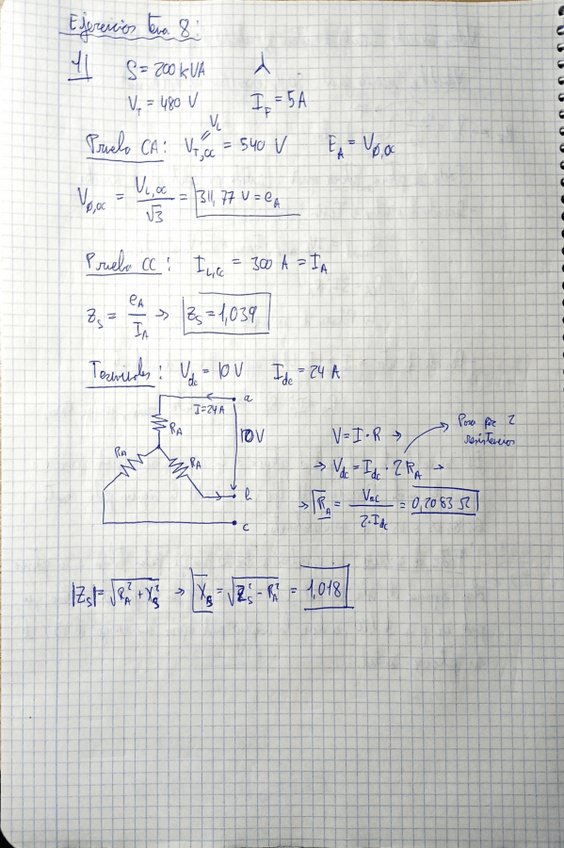 Ejercicios tema 8:
1|
S = 200 kVA
V_T = 480 V I_F = 5A
V_L
Prueba CA: V_T,oc = 540 V E_A = V_ø,oc
V_ø,oc = V_L,oc / √3 = 311,77 V = e_A
Prueba CC: I_L,cc = 300 A = I_A
Z_s = e_A / I_A → Z_s = 1,039
Terminales: V_dc = 10 V I_dc = 24 A
a
I = 24A
R_A
10V
R_A
R_A
b
c
Pasa por 2
resistencias
V = I · R →
→ V_dc = I_dc · 2 R_A →
→ R_A = V_dc / 2·I_dc = 0,2083 Ω
|Z_s| = √R_A² + X_s² → X_s = √Z_s² - R_A² = 1,018